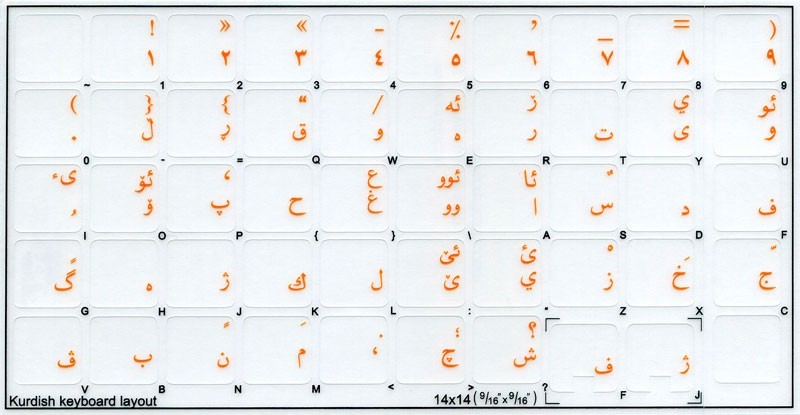 ! » « - ٪ ’ _ = )
١ ٢ ٣ ٤ ٥ ٦ ٧ ٨ ٩
~ 1 2 3 4 5 6 7 8 9
( } { “ / ئە ڕ ي ئو
. ڵ ڕ ق و ە ر ت ی و
0 - = Q W E R T Y U
ئۆ ، ع ئوو ئا
ۆ پ ح غ وو ا س د ف
I O P { } \ A S D F
ئێ ئ
گ ه ژ ك ل ێ ي ز خ ج
G H J K L : " Z X C
؛ ؟
ڤ ب ن م ، چ ش ف ژ
V B N M < > ? F J
Kurdish keyboard layout 14x14 (9/16"x9/16")